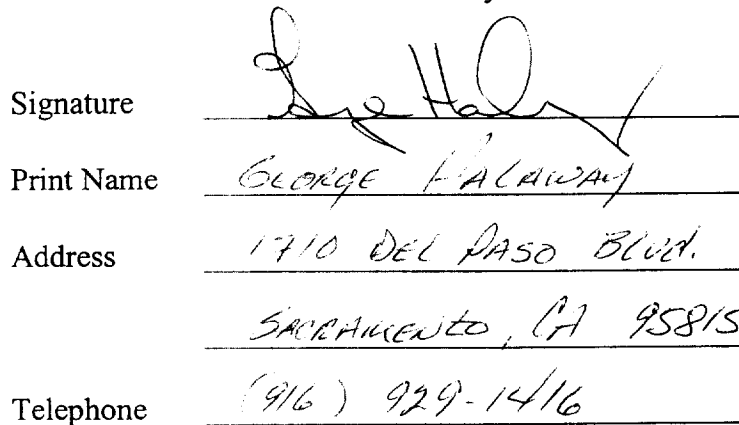 Signature
Print Name GEORGE HALAWAY
Address 1710 DEL PASO BLVD.
SACRAMENTO, CA 95815
Telephone (916) 929-1416